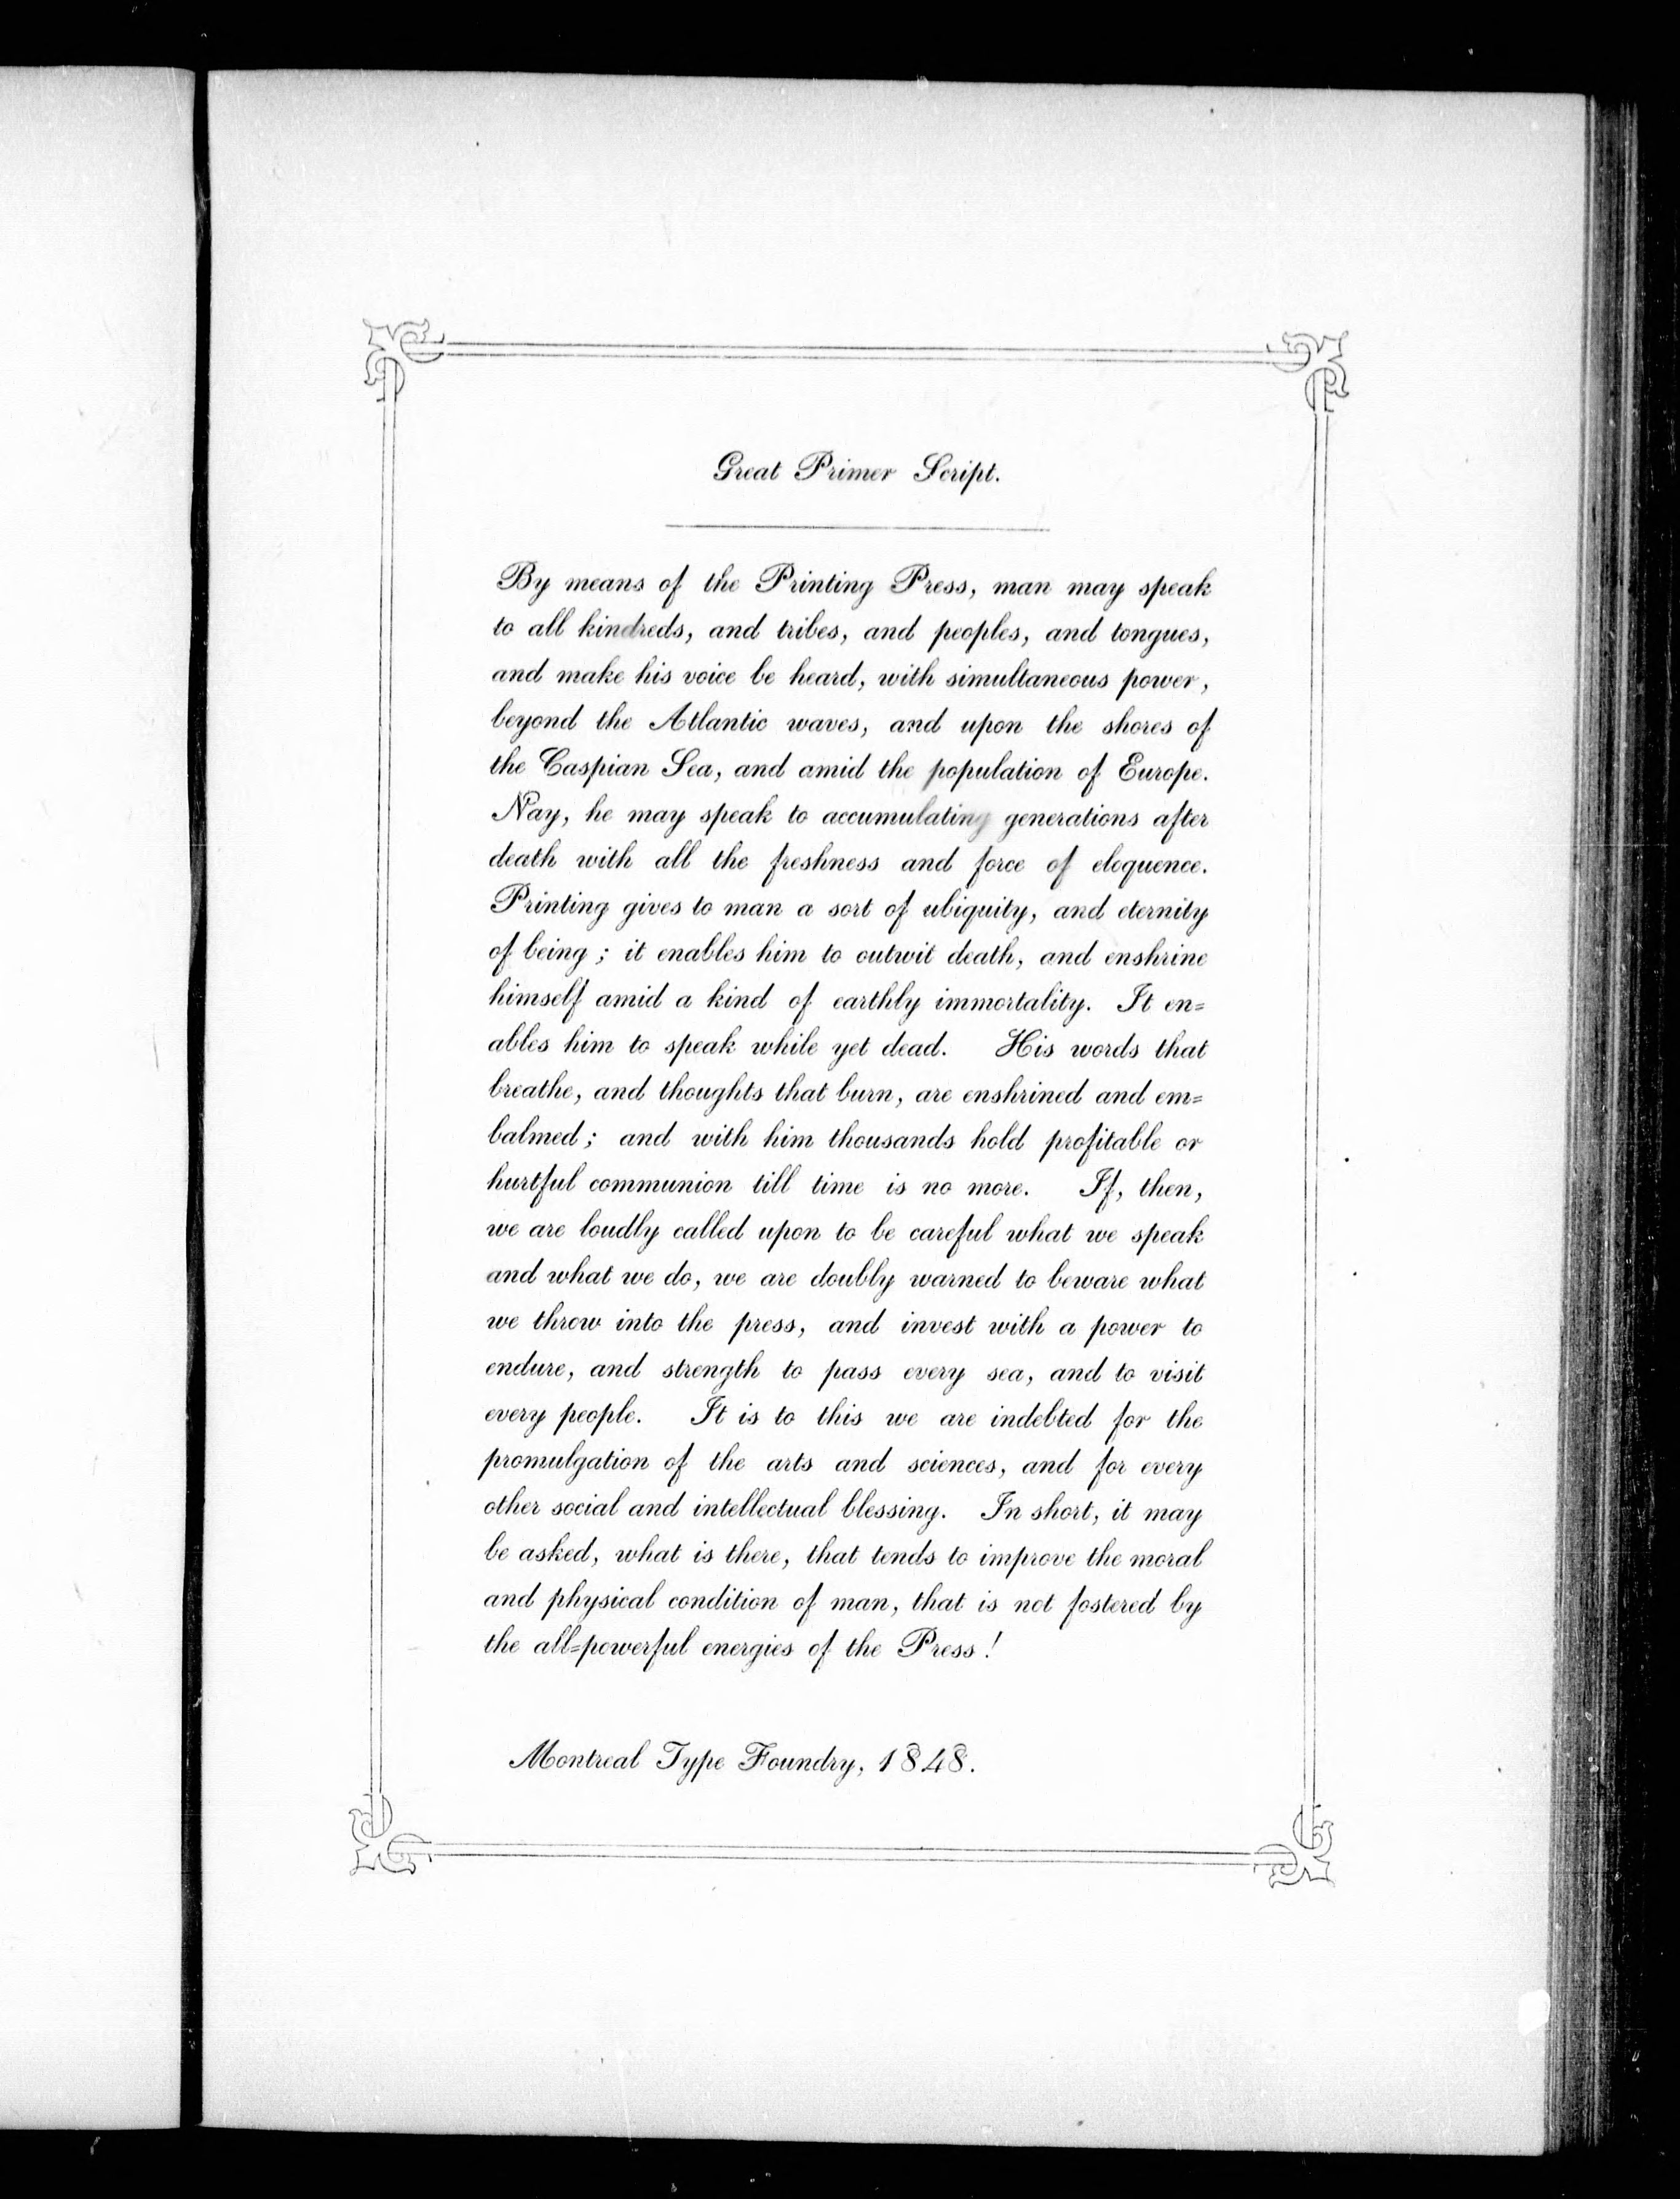 Great Primer Script.
By means of the Printing Press, man may speak
to all kindreds, and tribes, and peoples, and tongues,
and make his voice be heard, with simultaneous power,
beyond the Atlantic waves, and upon the shores of
the Caspian Sea, and amid the population of Europe.
Nay, he may speak to accumulating generations after
death with all the freshness and force of eloquence.
Printing gives to man a sort of ubiquity, and eternity
of being; it enables him to outwit death, and enshrine
himself amid a kind of earthly immortality. It en=
ables him to speak while yet dead. His words that
breathe, and thoughts that burn, are enshrined and em=
balmed; and with him thousands hold profitable or
hurtful communion till time is no more. If, then,
we are loudly called upon to be careful what we speak
and what we do, we are doubly warned to beware what
we throw into the press, and invest with a power to
endure, and strength to pass every sea, and to visit
every people. It is to this we are indebted for the
promulgation of the arts and sciences, and for every
other social and intellectual blessing. In short, it may
be asked, what is there, that tends to improve the moral
and physical condition of man, that is not fostered by
the all=powerful energies of the Press!
Montreal Type Foundry, 1848.